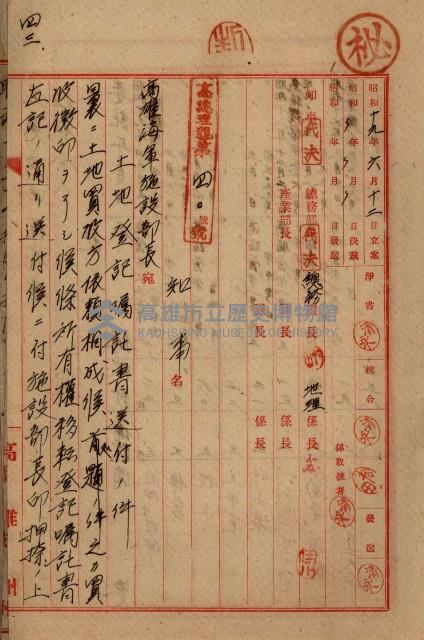 秘
昭和十九年六月十二日立案
昭和 年 月 日決裁
昭和 年 月 日發送
淨書
校合
發送
知事代決
總務部長代決
總務課長
地理係長
係取扱者
産業部長
課長
係長
課長
係長
高總理親第四〇號
知事名
高雄海軍施設部長宛
土地登記囑託書送付ノ件
曩ニ土地買收方依賴相成候首題ノ件之ガ買
收徵印ヲ了シ候條所有權移轉登記囑託書
左記ノ通リ送付候ニ付施設部長印押捺ノ上
四三
高雄市立歷史博物館
KAOHSIUNG MUSEUM OF HISTORY
高雄州